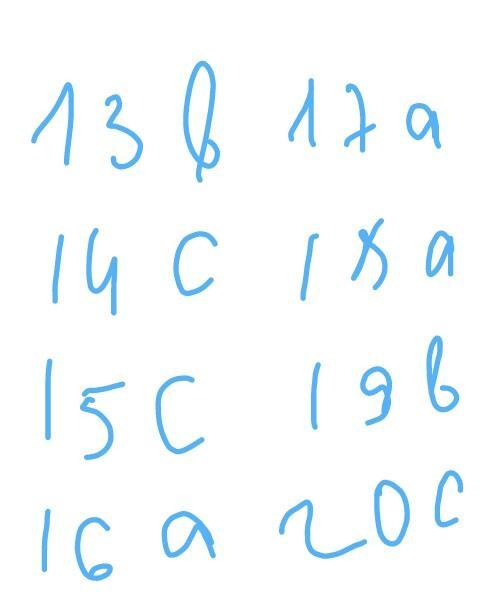 13 b 17 a
14 c 18 a
15 c 19 b
16 a 20 c